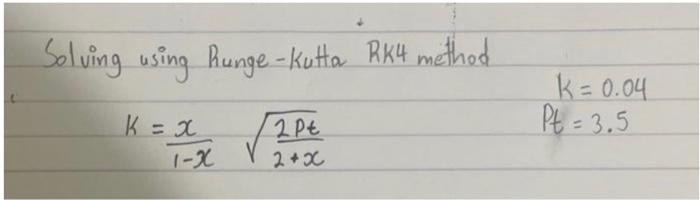 Solving using Runge-Kutta RK4 method
K = 0.04
K = x/(1-x) √(2Pt/(2+x))
Pt = 3.5